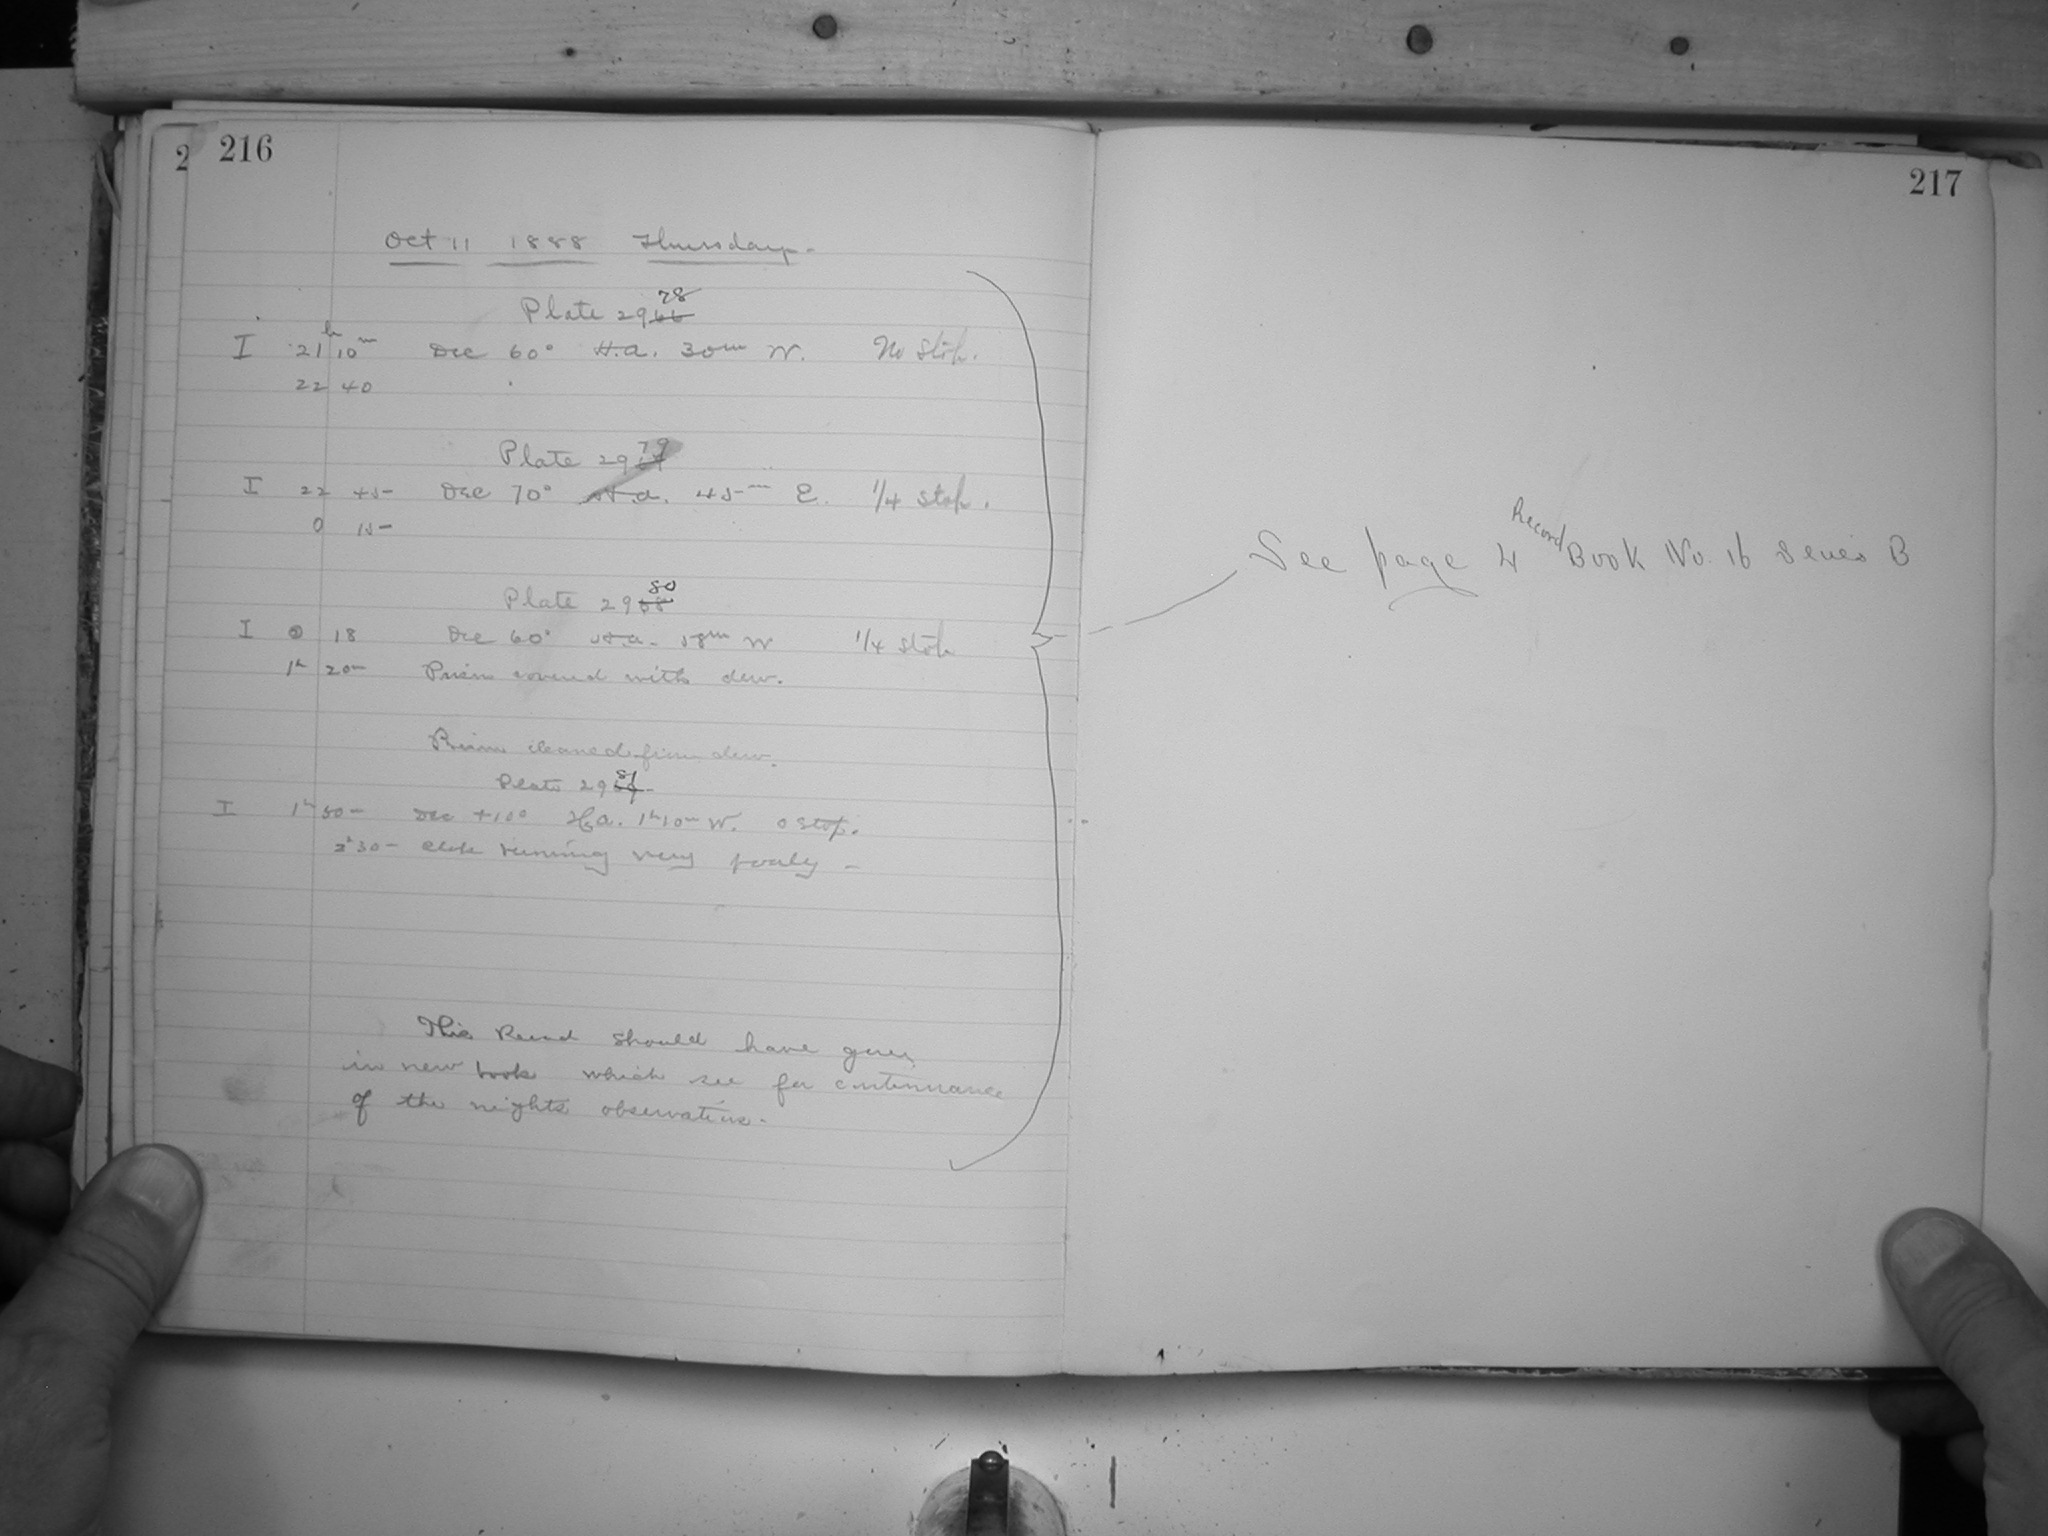 2 216
217
Oct 11 1888 Thursday-
78
Plate 2966
I 21h 10m Dec 60° H.a. 30m W. No stop.
22 40
79
Plate 2967
I 22 45- Dec 70° H.a. 45-m E. 1/4 stop.
0 15-
80
Plate 2968
I 0 18 Dec 60° H.a. 58m W 1/4 stop
1h 20m Prism covered with dew.
Prism cleaned from dew.
81
Plate 2969-
I 1h 50- Dec +10° H.a. 1h10m W. 0 stop.
2h30- Clock running very poorly -
This Record should have gone
in new book which see for continuance
of the nights observations.
See page 4 Record Book No. 16 Series B